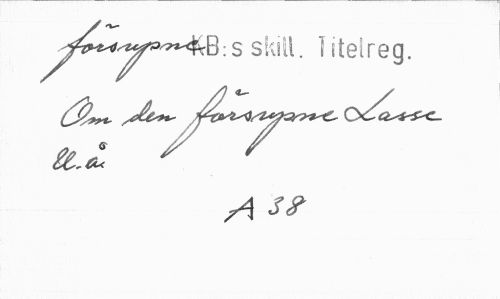 försupne KB:s skill. Titelreg.
Om den försupne Lasse
U.å.
A 38